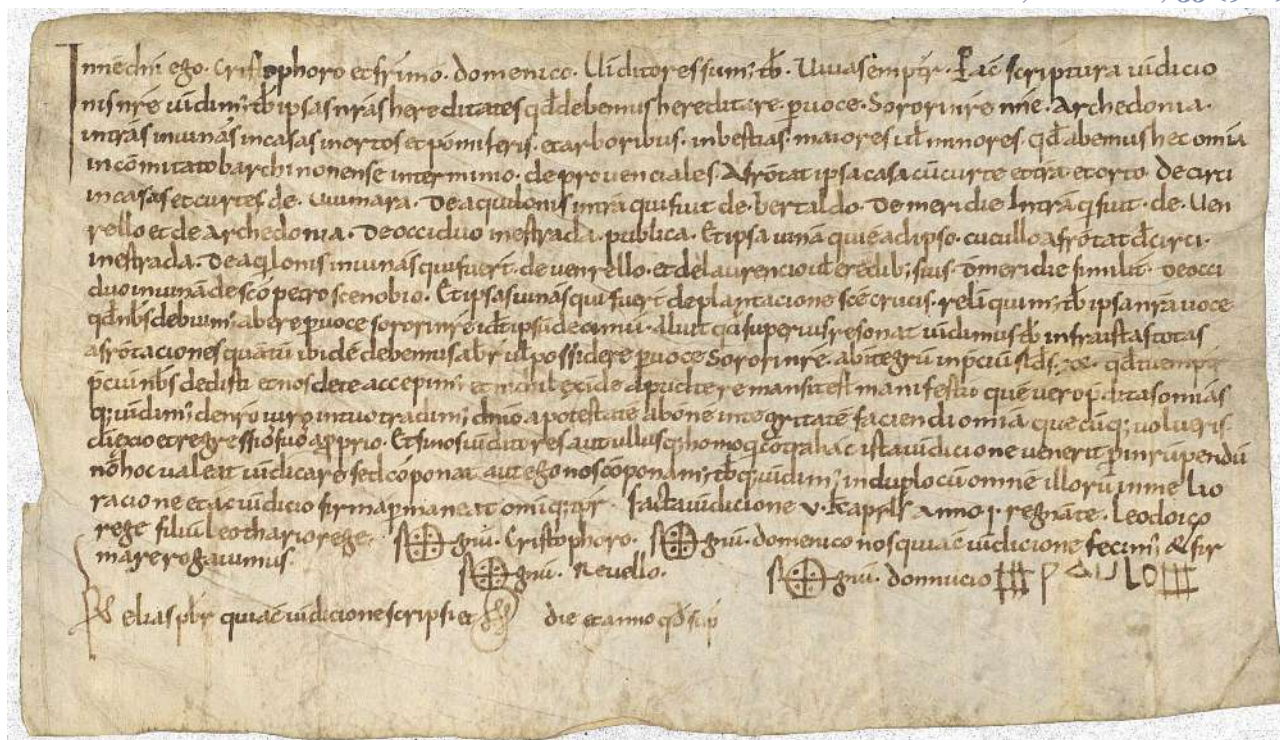 In nōe dn̄i ego. Cristophoro et frimo. domenico. Uiditores sum; tƀ. Uiuas emptr̄. P̱ ac̄ scriptura uidicio
nis nr̄e uidim; tƀ ipsas nr̄as hereditates qđ debemus hereditare. p̱ uoce. Sorori nr̄e nn̄e. Archedonia.
in trās in uinās in casas in ortos et pomiferis. et arboribus. in bestias. maiores uł minores. qđ abemus hec omia
in comitato barchinonense in termino. de prouenciales. Afrōtat ipsa casa cū curte et trā. et orto. de circi
in casas et curtes. de. Uuimara. De aquilonis in trā qui fuit de. bertaldo. De meridie In trā q̄ fuit. de. Uen
rello et de Archedonia. De occiduo in estrada. publica. Et ipsa uinā qui ē ad ipso. cucullo afrōtat đ circi.
in estrada. De aq̄lonis in uinās qui fuert̄. de uenrello. et de laurencio uł eredib; suis. D̄ meridie similit̄. De occi
duo in uinā de sc̄o petro scenobio. Et ipsas uinās qui fuert̄ de plantacione sc̄e crucis. reliquim; tƀ ipsa nr̄a uoce
qđ nƀs debuim; abere p̱ uoce sorori nr̄e
afrōtaciones quātū ibidē debemus abr̄ uł possidere p̱ uoce Sorori nr̄e. ab itegrū in p̄cıū
p̄cıū nƀs dedisti et nos de te accepim; et nichil exide
q; uidim; de nr̄o iuro in tuo tradim; dn̄io a potestatē ab one integritatē faciendi omia que cūq; uolueris.
cū exio et regressio suo a p̱prio. Et si nos uiditores aut ullus q; homo q̄ cōtra hac ista uidicione uenerit p̱ inrūpendū
nō hoc ualeat uidicare sed cōponat aut ego nos cōponam; tƀ q; uidim; in duplo cū omnē illorū in melio
racione et ac uidicio firma p̱maneat omiq; tpr̄. Facta uidicione v. kł aprłs Anno I. regnāte. Leodoico
rege filiū leothario rege. S gnū. Cristophoro. S gnū. domenico nos qui ac̄ uidicione fecim; & fir
mare rogauimus.
S gnū. Reuello. S gnū. donnucio PAULO
elias pƀr qui ac̄ uidicione scripsi et die et anno qđ sup̄